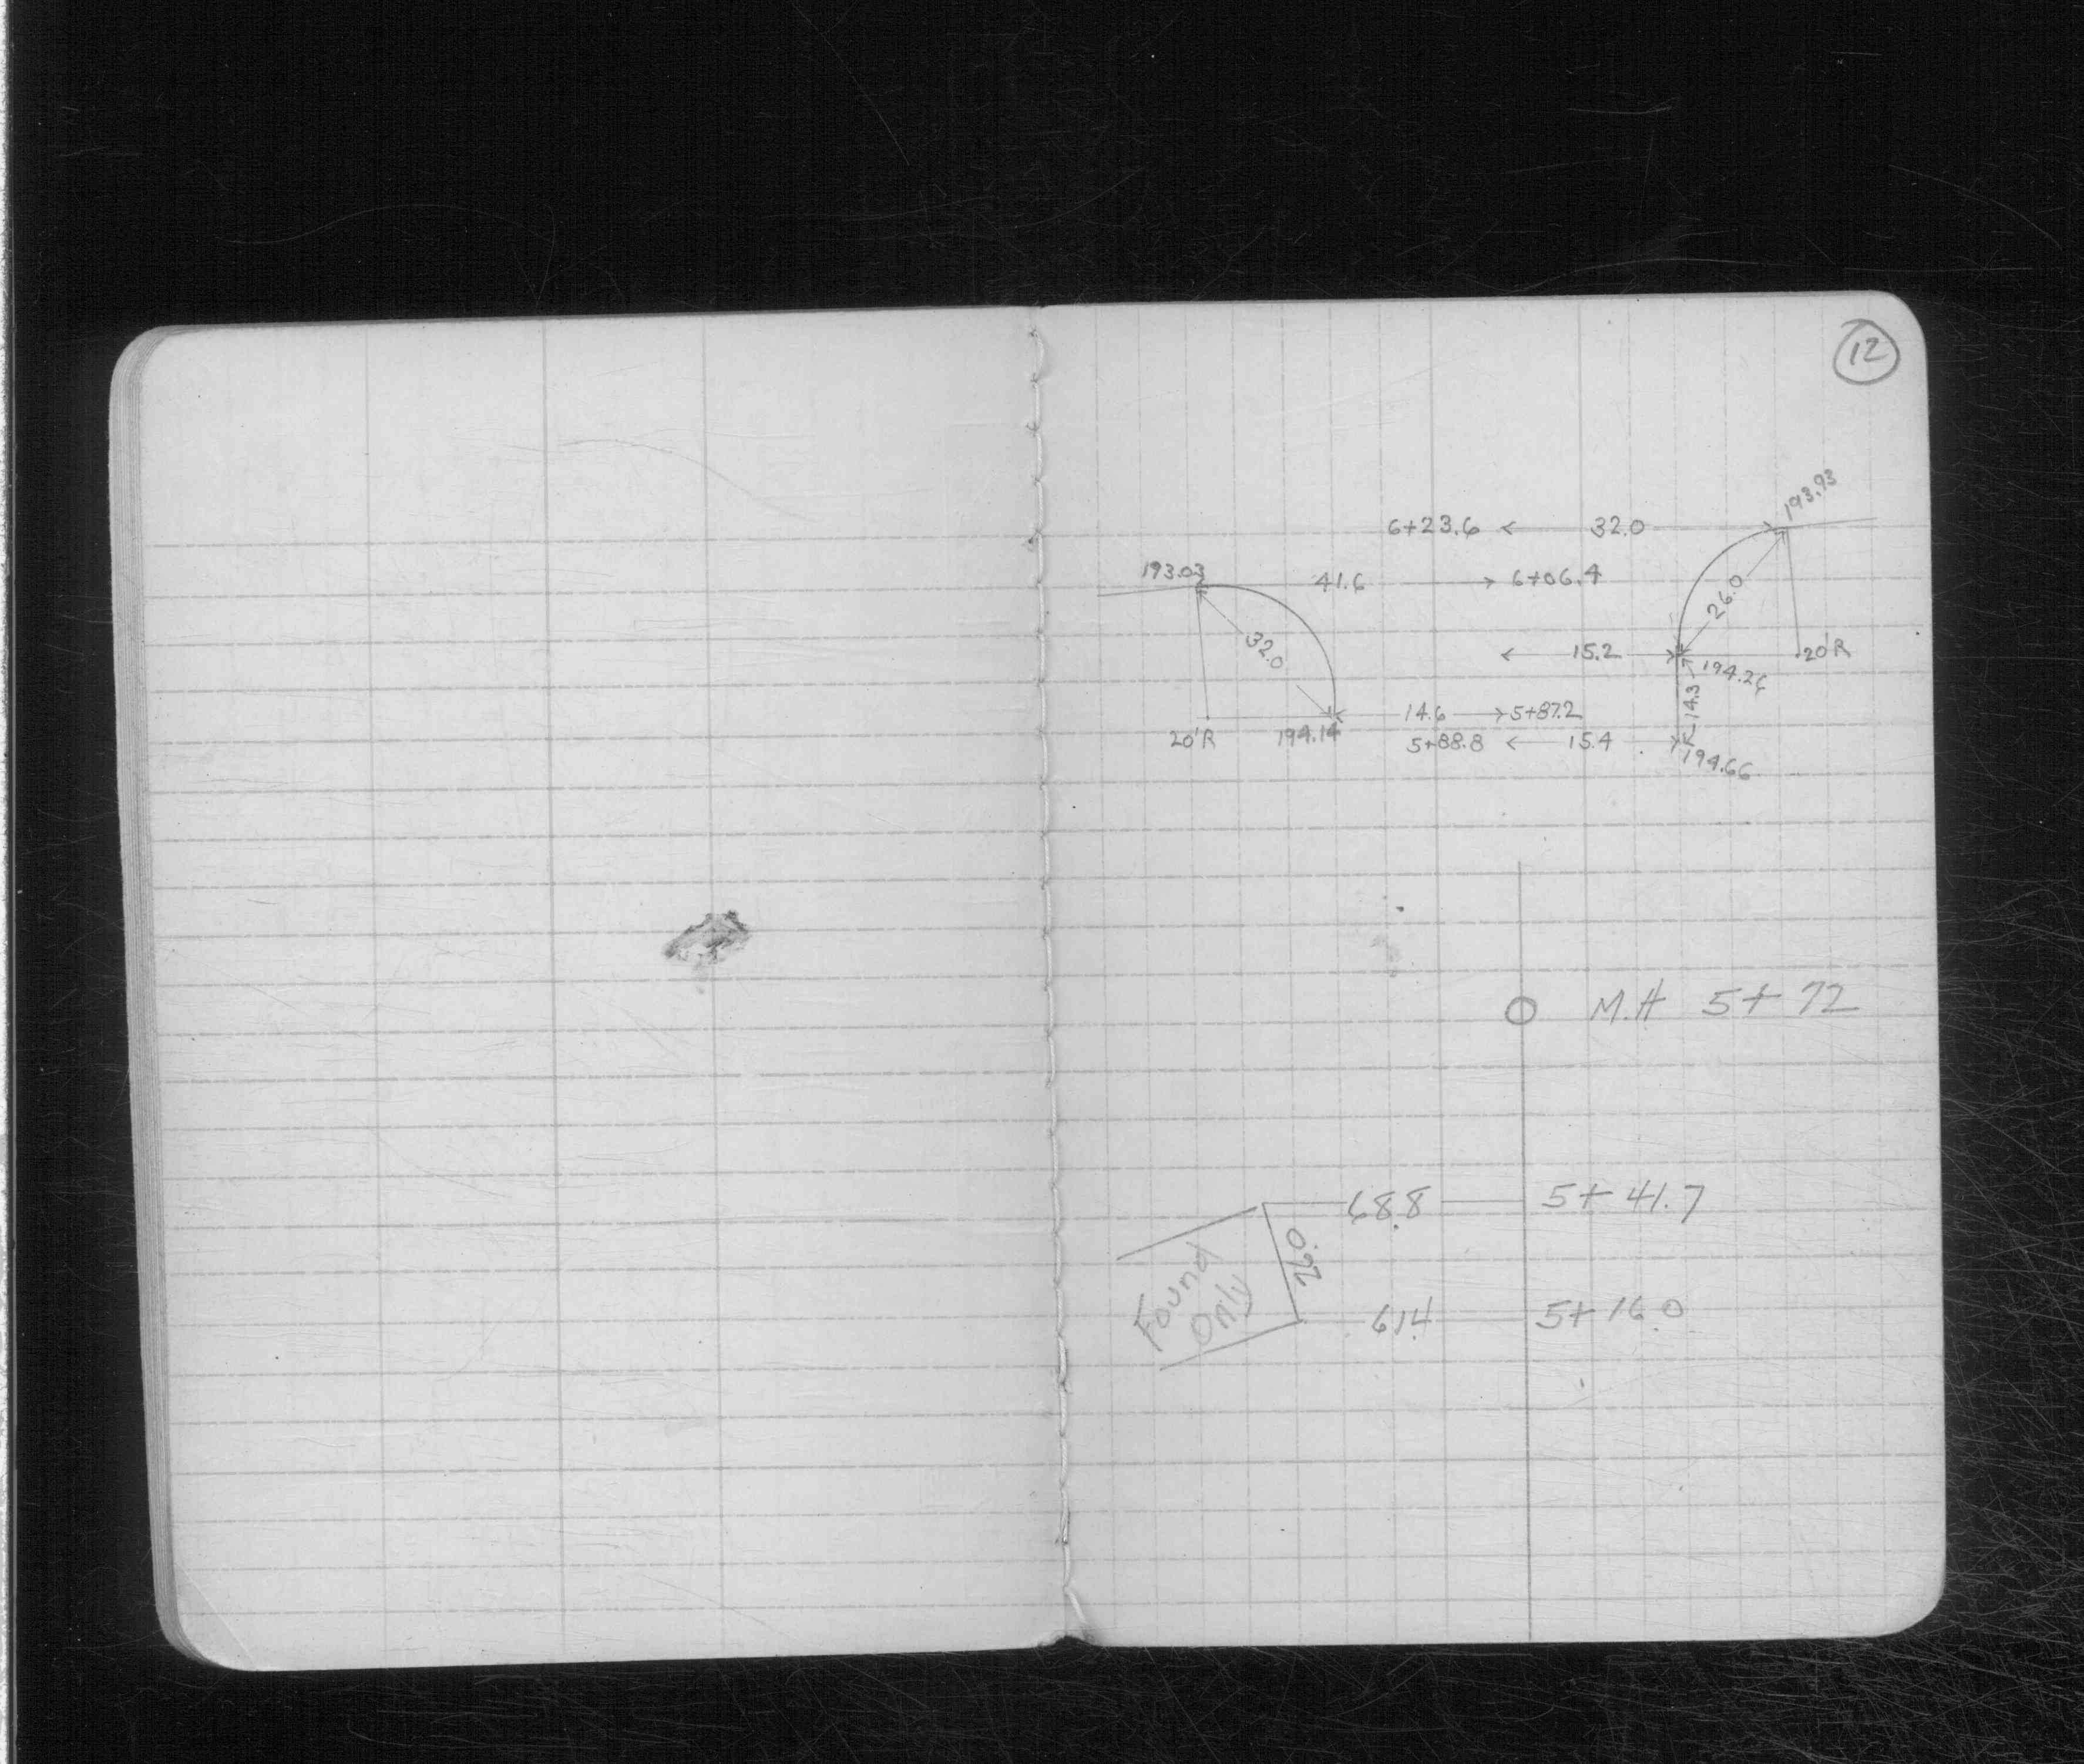 12
193.93
6+23.6 32.0
193.03 41.6 6+06.4
26.0
32.0
15.2 20'R
194.26
14.3
14.6 5+87.2
20'R 194.14 5+88.8 15.4
194.66
M.H 5+72
68.8 5+41.7
Found
Only
61.4 5+16.0